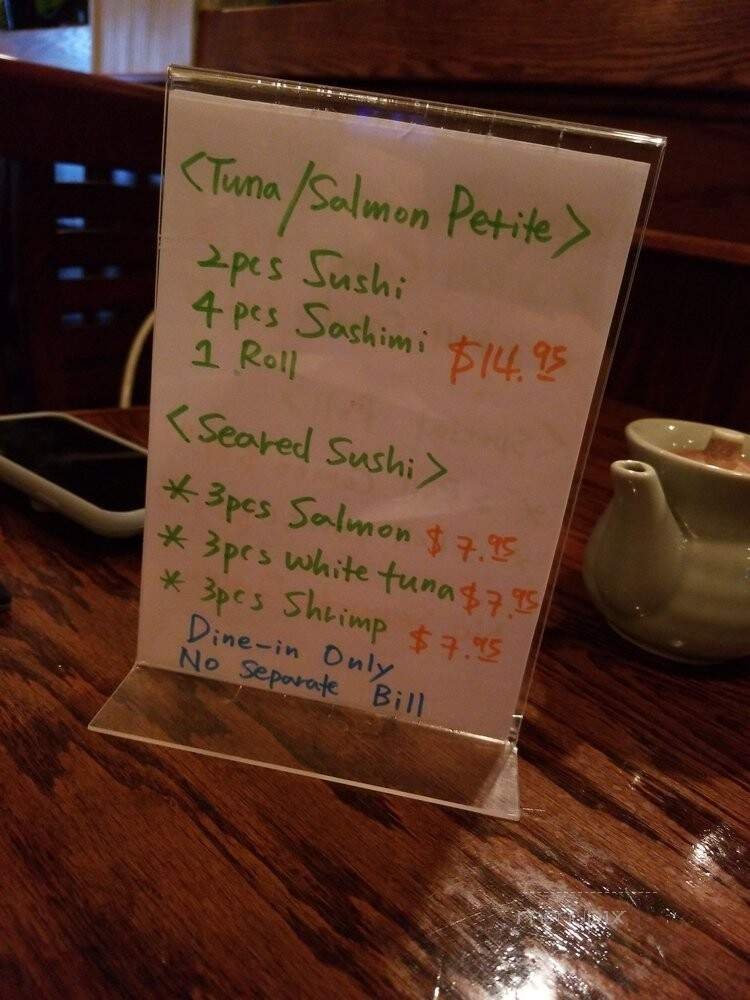 <Tuna/Salmon Petite>
2pcs Sushi
4 pcs Sashimi
1 Roll $14.95
<Seared Sushi>
* 3pcs Salmon $7.95
* 3pcs white tuna $7.95
* 3pcs Shrimp $7.95
Dine-in Only
No Separate Bill